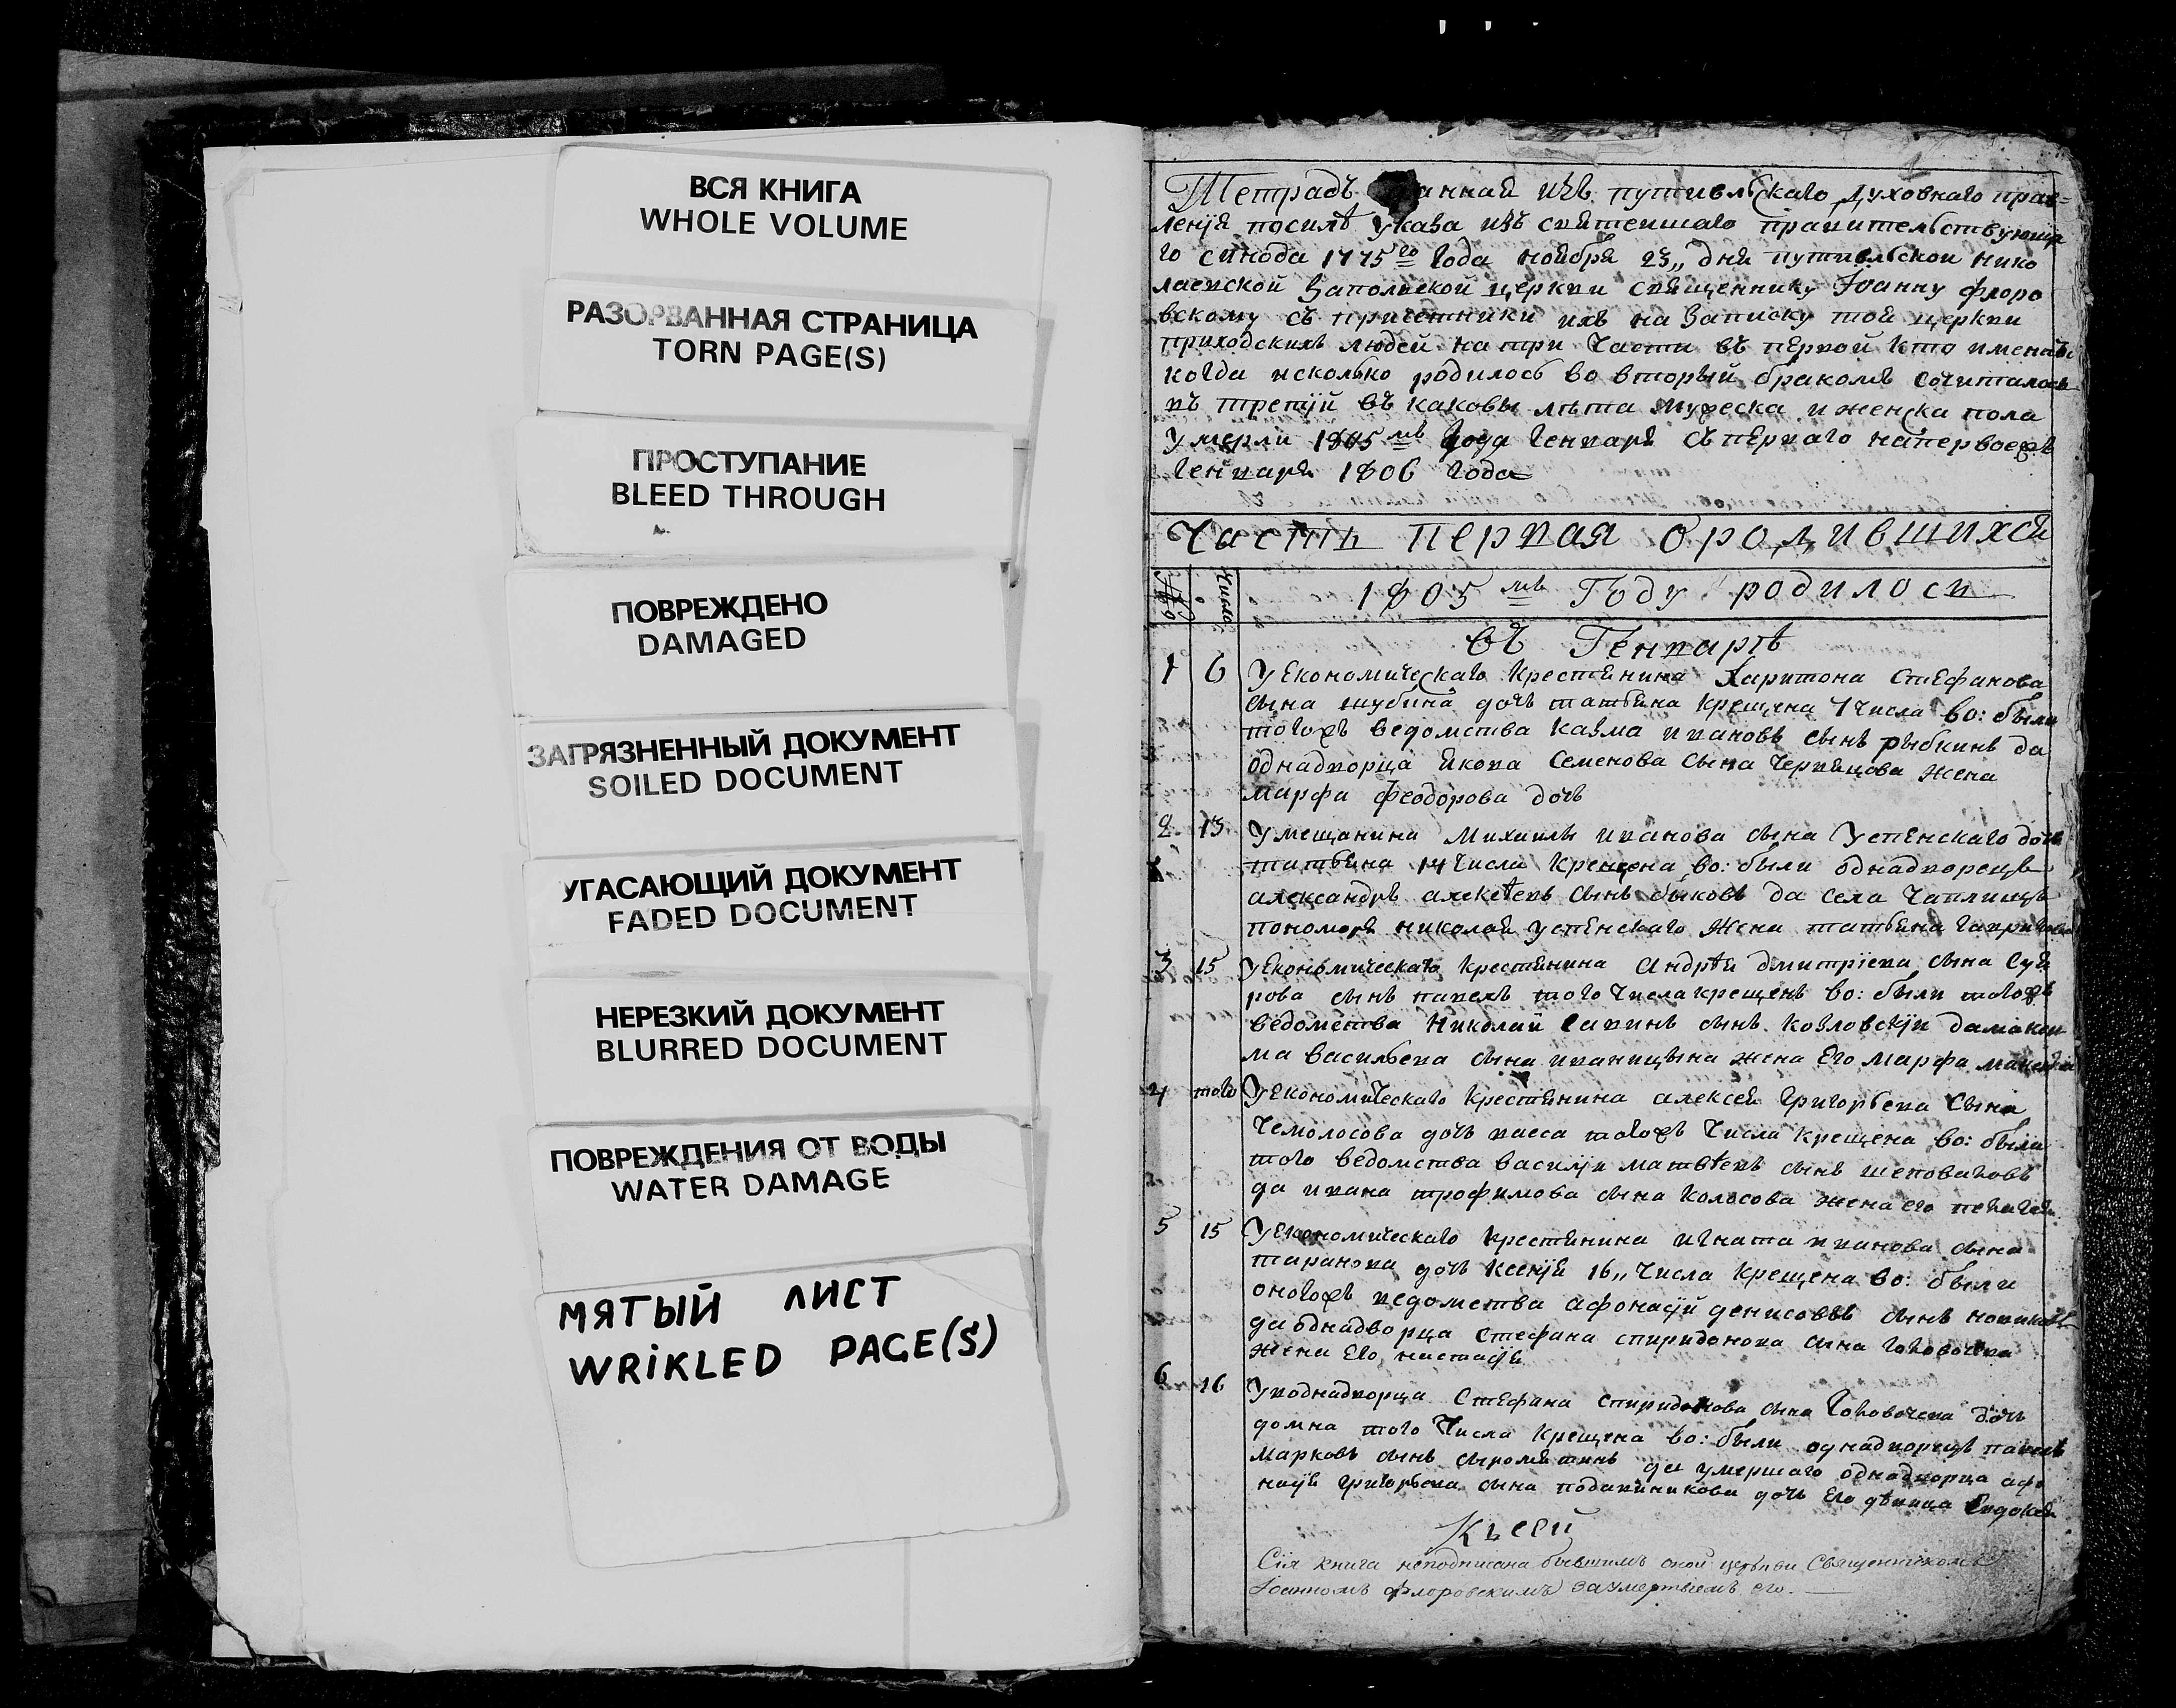 ВСЯ КНИГА
WHOLE VOLUME
РАЗОРВАННАЯ СТРАНИЦА
TORN PAGE(S)
ПРОСТУПАНИЕ
BLEED THROUGH
ПОВРЕЖДЕНО
DAMAGED
ЗАГРЯЗНЕННЫЙ ДОКУМЕНТ
SOILED DOCUMENT
УГАСАЮЩИЙ ДОКУМЕНТ
FADED DOCUMENT
НЕРЕЗКИЙ ДОКУМЕНТ
BLURRED DOCUMENT
ПОВРЕЖДЕНИЯ ОТ ВОДЫ
WATER DAMAGE
МЯТЫЙ ЛИСТ
WRiKLED PAGE(S)
1
Тетрадь изъ путивльскаго духовнаго прав=
ленїя посилѣ указа изъ святеишаго правительствующа
го синода 1775го года ноября 23,, дня путивльскои нико
лаевской Запольской церкви священнику Іоанну флоро
вскому съ причетники ихъ на Записку той церкви
приходскихъ людей на три части въ первой кто имены
когда исколько родилось во вторый бракомъ сочиталось
въ третїй въ каковы лѣта мужеска и женска пола
умерли 1805мъ года генваря съ перваго напервоежъ
генваря 1806 года
Часть первая ородившихся
число
1805мъ Году родилось
въ Генварѣ
1 6 У Економическаго крестянина Харитона Стефанова
сына шубина дочь татьяна крещена 7 числа во: были
тогожъ ведомства казма ивановъ сынъ рыбкинъ да
однадворца якова Семенова сына Червяцова жена
марфа феодорова дочь
2 13 У мещанина Михаилы иванова сына Успенскаго дочь
татьяна 14 числа крещена во: были однадворецъ
александръ алексѣевъ сынъ быковъ да села Чаплищъ
пономаря николая успенскаго жена татьяна
3 15 У Економическаго крестянина Андрѣя дмитріева сына
рова сынъ павелъ того числа крещенъ во: были тогожъ
ведомства Николай савинъ сынъ козловскїй
ма васильева сына иваницына жена его марфа
4 того У Економическаго крестянина алексея григорьева сына
Чемолосова дочь васса тогожъ числа крещена во: были
того ведомства василїй матвѣевъ сынъ шеповаловъ
да ивана трофимова сына колосова жена его
5 15 У Економическаго крестянина игната иванова сына
таранова дочь ксенїя 16,, числа крещена во: были
оногожъ ведомства афонасїй денисовъ сынъ новиковъ
да однадворца стефана спиридонова сына
жена его настасїя
6 16 У однадворца Стефана спиридонова сына дочь
домна того числа крещена во: были однадворецъ павелъ
марковъ сынъ сыромятинъ да умершаго однадворца афо
насїя григорьева сына дочь его дѣвица Евдокея
Къ сей
Сїя книга неподписана бывшимъ оной церкви Священникомъ
Іоанномъ флоровскимъ засмертїемъ его.